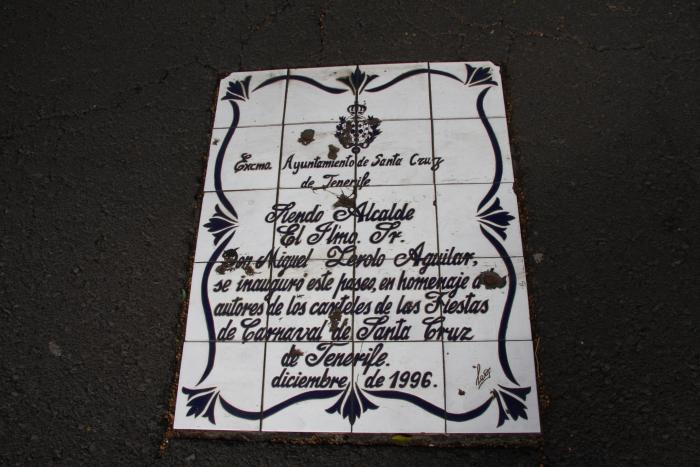 Excmo. Ayuntamiento de Santa Cruz
de Tenerife
Siendo Alcalde
El Ilmo. Sr.
Don Miguel Zerolo Aguilar,
se inauguró este paseo, en homenaje a
autores de los carteles de las Fiestas
de Carnaval de Santa Cruz
de Tenerife.
diciembre de 1996.